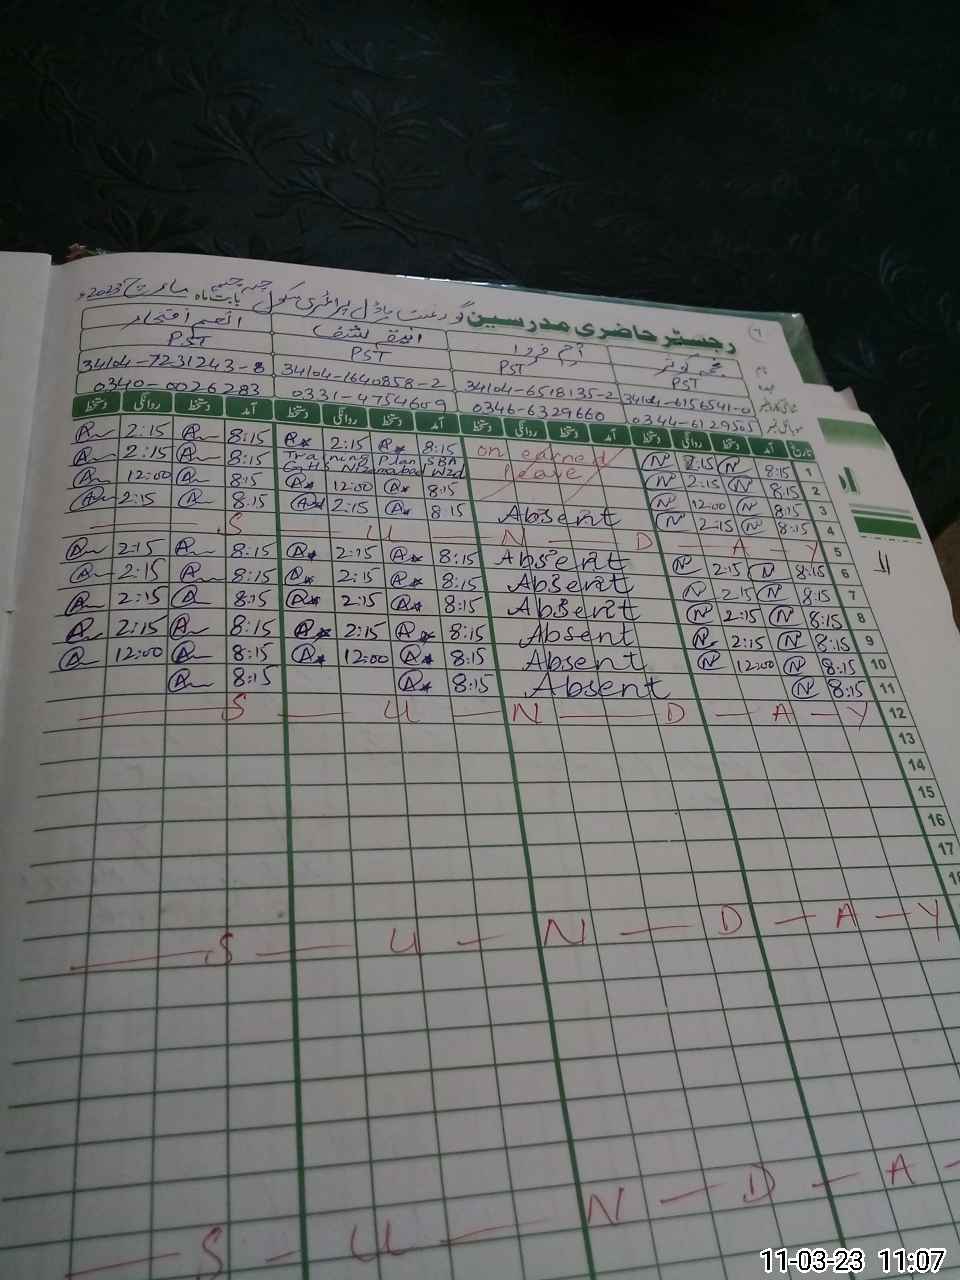 رجسٹر حاضری مدرسین گورنمنٹ ماڈل پرائمری سکول بابت ماہ مارچ 2023ء
PST PST PST PST
34104-7231243-8 34104-1640858-2 34104-6518135-2 34104-6156541-0
0340-0026283 0331-4754609 0346-6329660 0344-6129505
تاریخ آمد دستخط روانگی دستخط آمد دستخط روانگی دستخط آمد دستخط روانگی دستخط آمد دستخط روانگی دستخط
2:15 8:15 2:15 8:15 on earned 2:15 8:15 1
2:15 8:15 Training Plan SBA leave 2:15 8:15 2
12:00 8:15 12:00 8:15 12:00 8:15 3
2:15 8:15 2:15 8:15 Absent 2:15 8:15 4
S U N D A Y 5
2:15 8:15 2:15 8:15 Absent 2:15 8:15 6
2:15 8:15 2:15 8:15 Absent 2:15 8:15 7
2:15 8:15 2:15 8:15 Absent 2:15 8:15 8
2:15 8:15 2:15 8:15 Absent 2:15 8:15 9
12:00 8:15 12:00 8:15 Absent 12:00 8:15 10
8:15 8:15 Absent 8:15 11
S U N D A Y 12
13
14
15
16
17
18
S U N D A Y
S U N D A
11-03-23 11:07